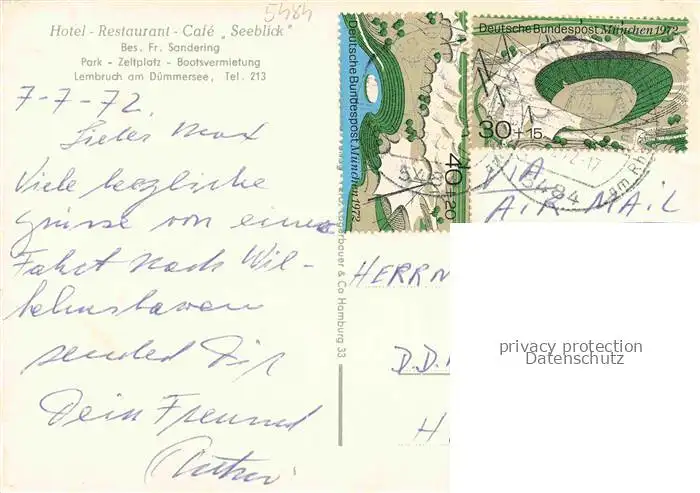 5484
Hotel - Restaurant - Café „Seeblick"
Bes. Fr. Sandering
Park - Zeltplatz - Bootsvermietung
Lembruch am Dümmersee, Tel. 213
7-7-72.
Lieber Max
Viele herzliche
Grüsse von einer
Fahrt nach Wil-
helmshaven
sendet Dir
Dein Freund
Deutsche Bundespost München 1972
40+20
Deutsche Bundespost München 1972
30+15
5484
5484
am Rh
VIA
AIR MAIL
HERRN
D.D.
H
& Co Hamburg 33
privacy protection
Datenschutz